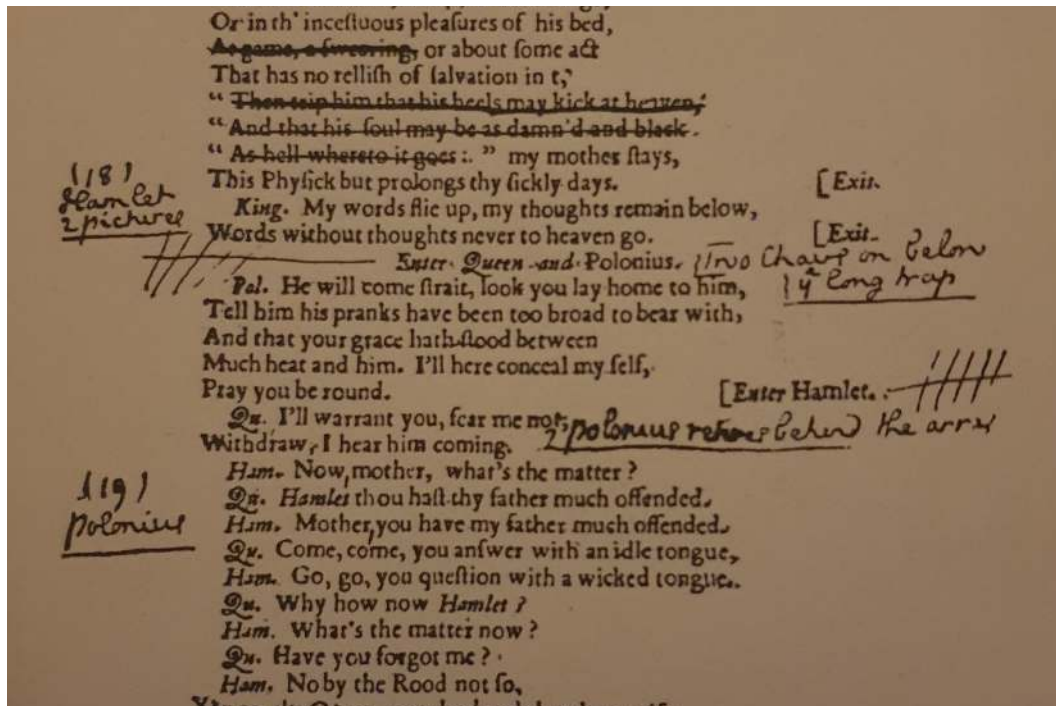 Or in th' inceſtuous pleaſures of his bed,
At game, a ſwearing, or about ſome act
That has no relliſh of ſalvation in t,'
" Then trip him that his heels may kick at heaven,
" And that his ſoul may be as damn'd and black
" As hell whereto it goes:. " my mother ſtays,
(18)
Hamlet
2 pictures
This Phyſick but prolongs thy ſickly days. [Exit.
King. My words flie up, my thoughts remain below,
Words without thoughts never to heaven go. [Exit.
Enter Queen and Polonius. Two Chairs on below
yᵉ long trap
Pol. He will come ſtrait, look you lay home to him,
Tell him his pranks have been too broad to bear with,
And that your grace hath ſtood between
Much heat and him. I'll here conceal my ſelf,
Pray you be round. [Enter Hamlet.
Qu. I'll warrant you, fear me not,
polonius retires behind the arras
Withdraw, I hear him coming.
Ham. Now, mother, what's the matter?
(19)
polonius
Qu. Hamlet thou haſt thy father much offended.
Ham. Mother, you have my father much offended.
Qu. Come, come, you anſwer with an idle tongue,
Ham. Go, go, you queſtion with a wicked tongue.
Qu. Why how now Hamlet?
Ham. What's the matter now?
Qu. Have you forgot me?
Ham. No by the Rood not ſo,